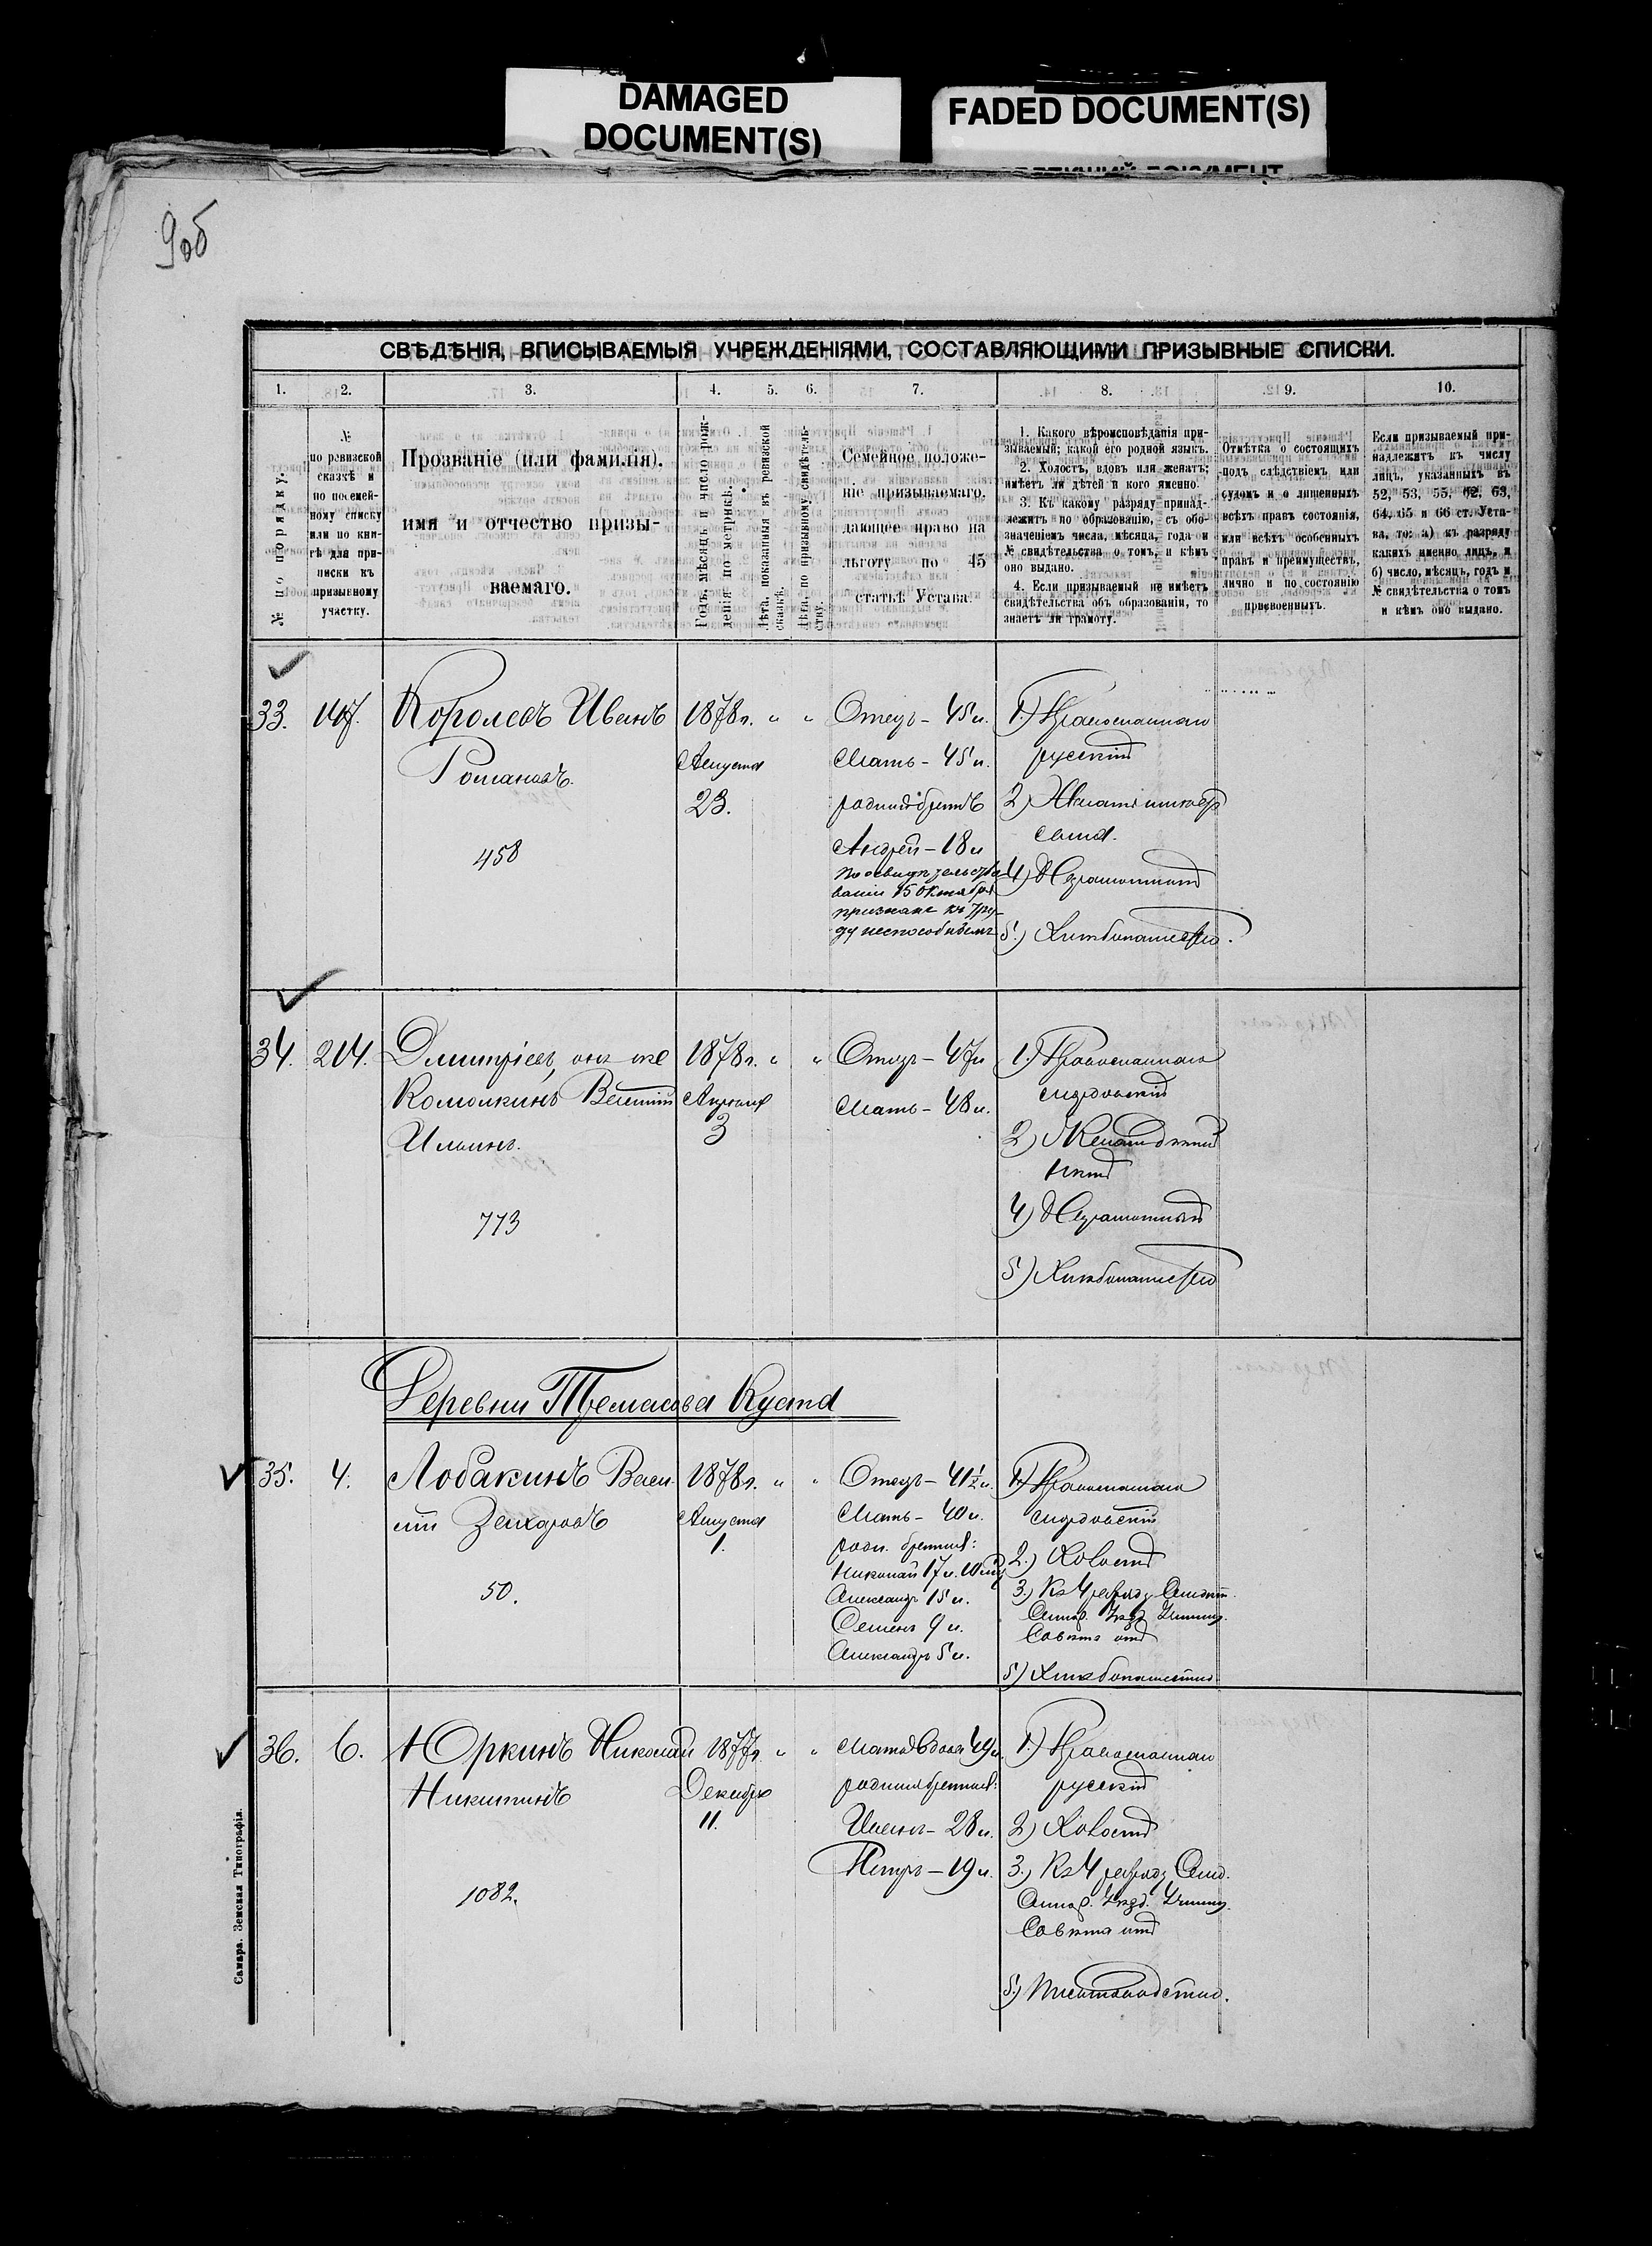 DAMAGED
DOCUMENT(S)
FADED DOCUMENT(S)
9об
СВѢДѢНІЯ, ВПИСЫВАЕМЫЯ УЧРЕЖДЕНІЯМИ, СОСТАВЛЯЮЩИМИ ПРИЗЫВНЫЕ СПИСКИ.
1. 2. 3. 4. 5. 6. 7. 8. 9. 10.
№ по порядку.
№
по ревизской
сказкѣ и
по посемей-
ному списку
или по кни-
гѣ для при-
писки къ
призывному
участку.
Прозваніе (или фамилія).
имя и отчество призы-
ваемаго.
Годъ, мѣсяцъ и число рож-
денія по метрикѣ.
Лѣта, показанныя въ ревизской
сказкѣ.
Лѣта, по призывному свидѣтель-
ству.
Семейное положе-
ніе призываемаго,
дающее право на
льготу по 45
статьѣ Устава.
1. Какого вѣроисповѣданія при-
зываемый; какой его родной языкъ.
2. Холостъ, вдовъ или женатъ;
имѣетъ ли дѣтей и кого именно.
3. Къ какому разряду принад-
лежитъ по образованію, съ обо-
значеніемъ числа, мѣсяца, года и
№ свидѣтельства о томъ, и кѣмъ
оно выдано.
4. Если призываемый не имѣетъ
свидѣтельства объ образованіи, то
знаетъ ли грамоту.
Отмѣтка о состоящихъ
подъ слѣдствіемъ или
судомъ и о лишенныхъ
всѣхъ правъ состоянія,
или всѣхъ особенныхъ
правъ и преимуществъ,
лично и по состоянію
присвоенныхъ.
Если призываемый при-
надлежитъ къ числу
лицъ, указанныхъ въ
52, 53, 55, 62, 63,
64, 65 и 66 ст. Уста-
ва, то: а) къ разряду
какихъ именно лицъ, и
б) число, мѣсяцъ, годъ и
№ свидѣтельства о томъ
и кѣмъ оно выдано.
33. 147. Королевъ Иванъ 1878г. " " Отецъ - 45 л. 1.) Православнаго
Романовъ. Августа Мать - 45 л. русскій
23. родной братъ 2) Женатъ
Андрей - 18 л.
458
по освидѣтельство-
ваніи 15 Октября
признанъ къ тру-
ду неспособнымъ
4) Неграмотный
5.) Хлѣбопашество.
34. 214. Дмитріевъ, онъ же 1878г. " " Отецъ - 47 л 1.) Православнаго
Апрѣля Мать - 48 л. мордовскій
Ильинъ. 3 2) Женатъ
773
4) Неграмотный
5) Хлѣбопашество
Деревни Кустъ
35. 4. Лобакинъ Васи- 1878г. " " Отецъ - 41½ л. 1.) Православнаго
лій Захаровъ Августа Мать - 40 л. мордовскій
1. родн. братья: 2.) Холостъ
Николай 17 л.
50. Александръ 15 л. 3.) Къ 4 разряду
Семенъ 9 л.
Александръ 5 л. Совѣта
5) Хлѣбопашество
36. 6. Юркинъ Николай 1877г. " " Мать вдова 49 л. 1.) Православнаго
Никитинъ Декабря родные братья: русскій
11. 28 л. 2) Холостъ
Петръ - 19 л. 3.) Къ 4 разряду
1082.
Совѣта
5.)
Самара. Земская Типографія.